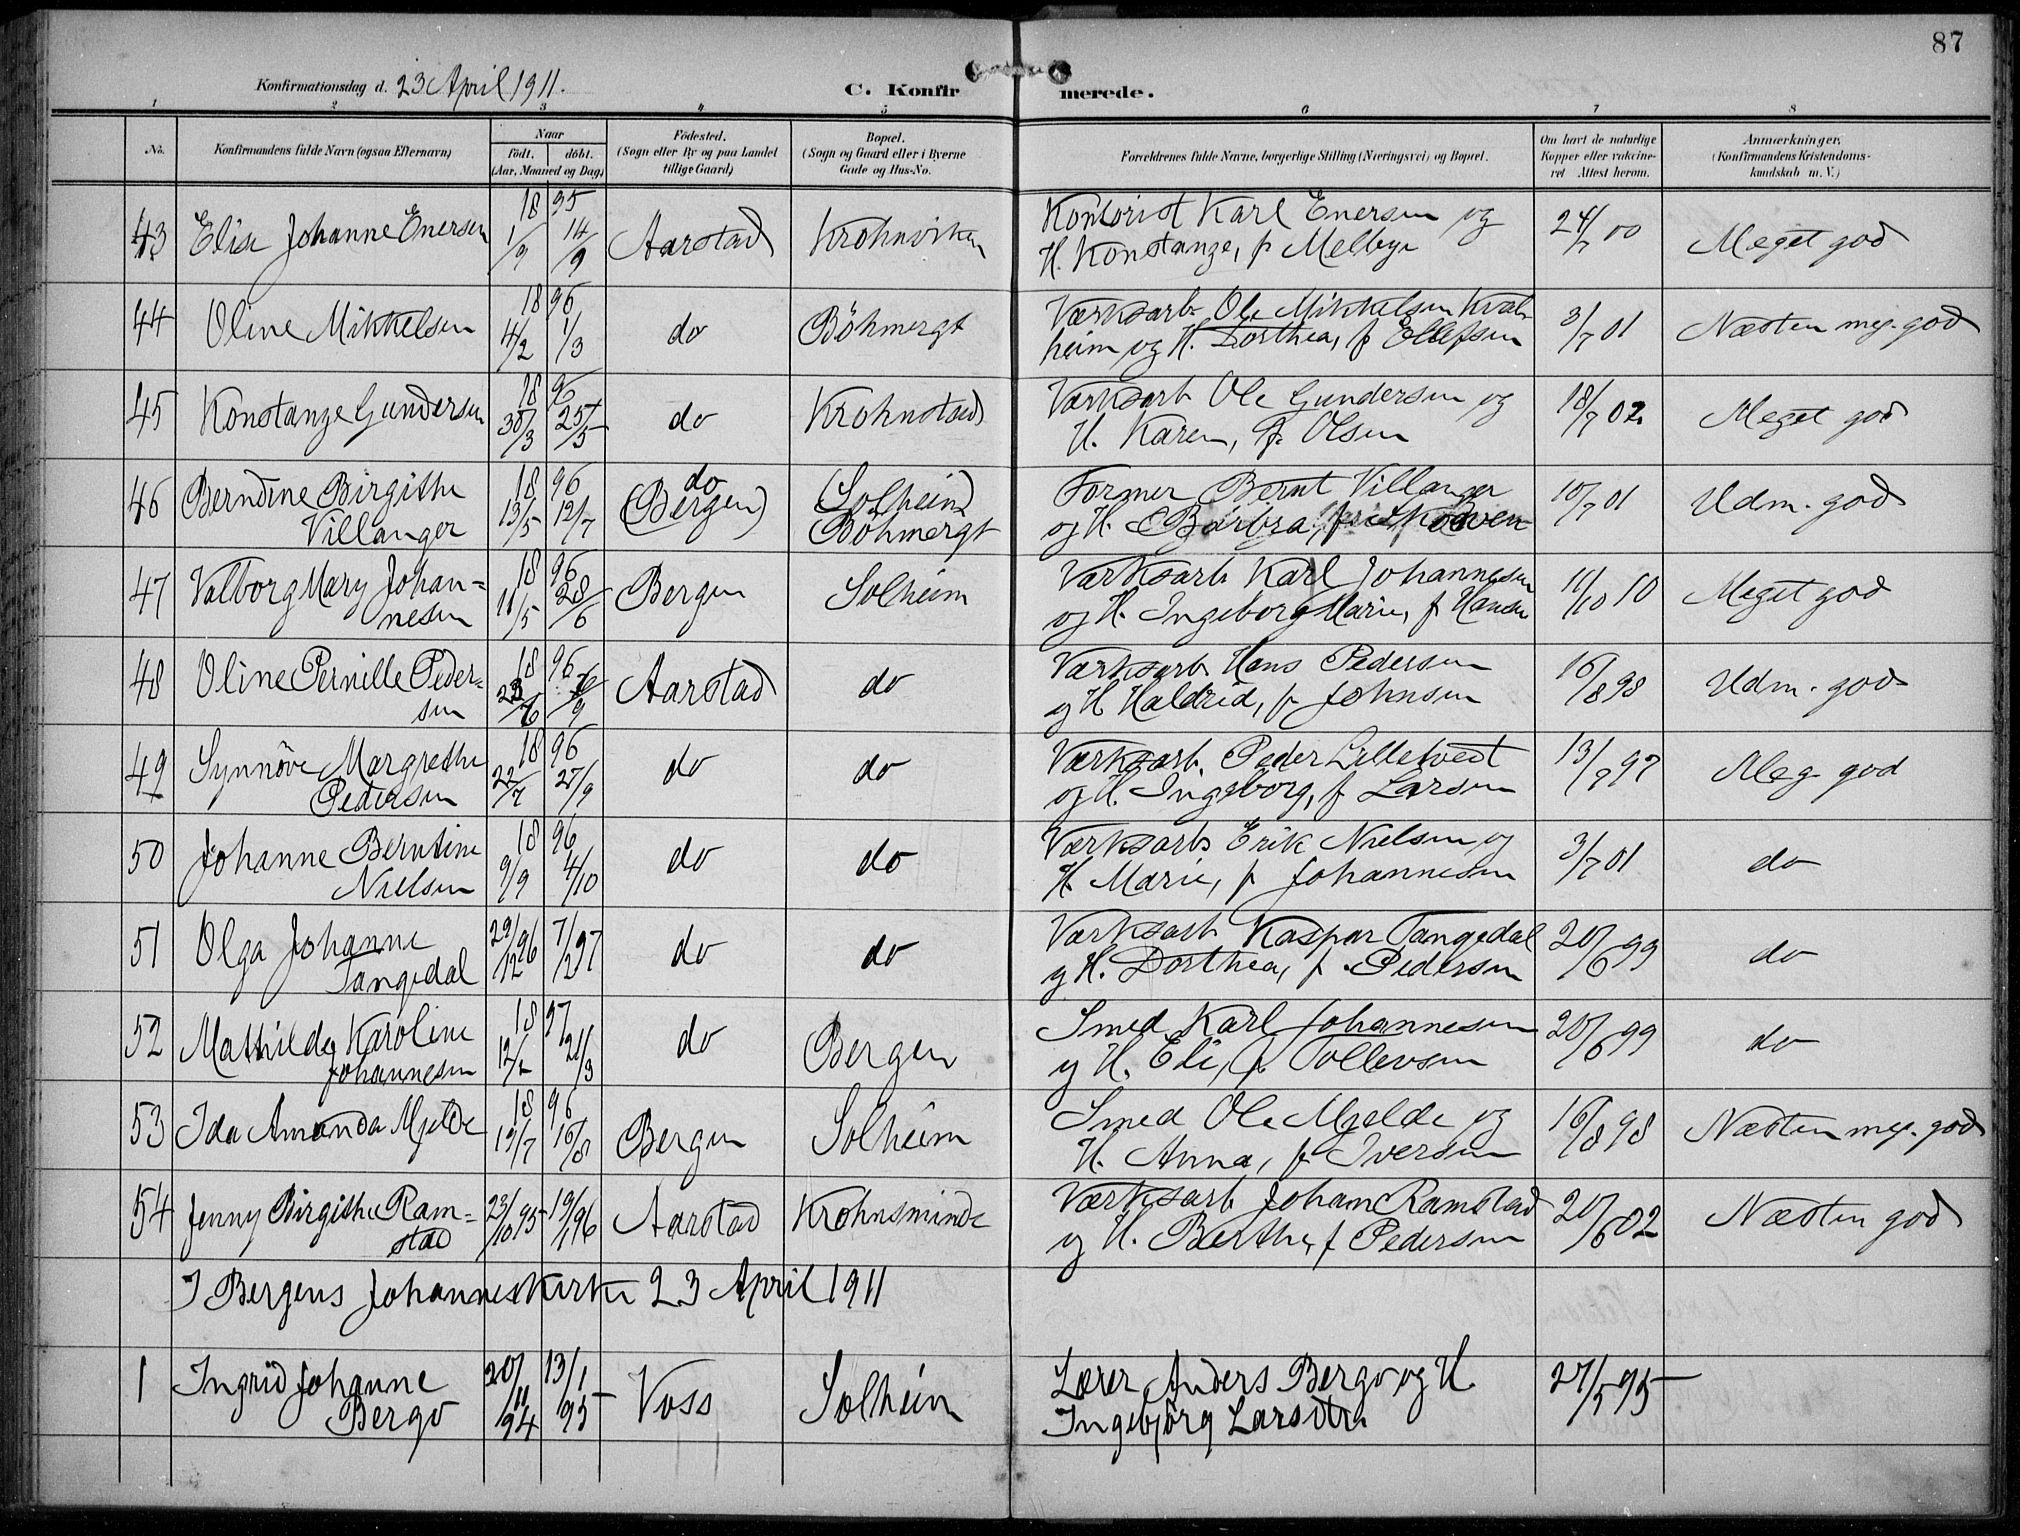 87
Konfirmationsdag d. 23 April 1911.
C. Konfirmerede.
1 2 3 4 5 6 7 8
No.
Konfirmandens fulde Navn (ogsaa Efternavn)
Naar
födt. döbt.
(Aar, Maaned og Dag)
Födested.
(Sogn eller By og paa Landet
tillige Gaard)
Bopæl.
(Sogn og Gaard eller i Byerne
Gade og Hus-No.
Forældrenes fulde Navne, borgerlige Stilling (Næringsvei) og Bopæl.
Om havt de naturlige
Kopper eller vakcine-
ret Attest herom.
Anmærkninger.
(Konfirmandens Kristendoms-
kundskab m. V.)
18 95
43 Elise Johanne Enersen 1/9 14/9 Aarstad Krohnviken
Kontorist Karl Enersen og
H. Konstanze, f. Melbye
24/7 00 Meget god
18 96
44 Oline Mikkelsen 4/2 1/3 do Böhmergt
Værksarb. Ole Mikkelsen Kval-
heim og H. Dorthea, f Ellefsen
3/7 01 Næsten meg. god
18 96
45 Konstanze Gundersen 30/3 25/5 do Krohnstad
Værksarb Ole Gundersen og
H. Karen, f. Olsen
18/7 02 Meget god
18 96
46 Berndine Birgithe
Villanger 13/5 12/7 do
(Bergen) (Solheim)
Böhmergt
Former Bernt Villanger
og H. Barbra, f.
10/7 01 Udm. god
18 96
47 Valborg Mary Johan=
nesen 11/5 28/6 Bergen Solheim
Værksarb Karl Johannesen
og H. Ingeborg Marie, f Hansen
11/10 10 Meget god
18 96
48 Oline Pernille Peder-
sen 23/6 6/9 Aarstad do
Værksarb. Hans Pedersen
og H Haldrid, f. Johnsen
16/8 98 Udm. god
18 96
49 Synnöve Margrethe
Pedersen 22/7 27/9 do do
Værksarb. Peder Lilletvedt
og H. Ingeborg, f Larsen
13/7 97 Meg. god
18 96
50 Johanne Berntine
Nielsen 9/9 4/10 do do
Værksarb Erik Nielsen og
H Marie, f. Johannesen
3/7 01 do
51 Olga Johanne
Tangedal 29/12 96 7/2 97 do do
Værksarb Kaspar Tangedal
og H. Dorthea, f. Pedersen
20/6 99 do
18 97
52 Mathilde Karoline
Johannesen 12/2 21/3 do Bergen
Smed Karl Johannesen
og H. Eli, f. Tollevsen
20/6 99 do
18 96
53 Ida Amanda Mjelde 19/7 16/8 Bergen Solheim
Smed Ole Mjelde og
H. Anna, f. Iversen
16/8 98 Næsten meg. god
54 Jenny Birgithe Ram=
stad 23/10 95 19/1 96 Aarstad Krohnsminde
Værksarb Johan Ramstad
og H. Berthe, f Pedersen
20/6 02 Næsten god
I Bergens Johanneskirke 23 April 1911
1 Ingrid Johanne
Bergo 20/11 94 13/1 95 Voss Solheim
Lærer Anders Bergo og H.
Ingebjörg Larsdtr.
27/5 95 —